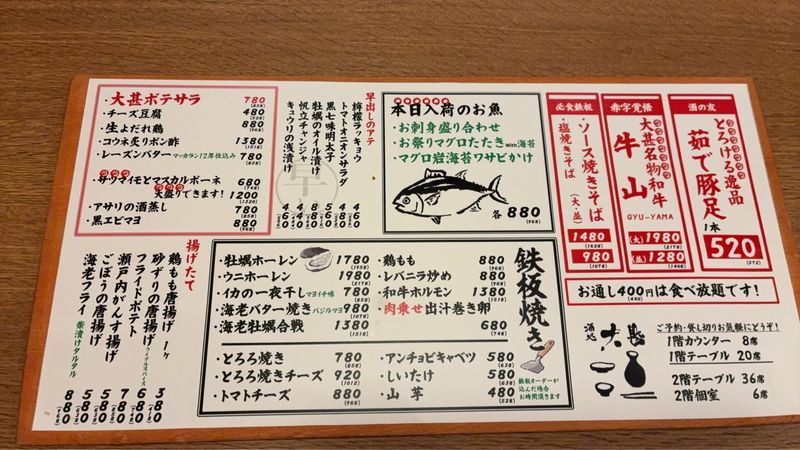 ・大甚ポテサラ 780 (858)
・チーズ豆腐 480 (528)
・生よだれ鶏 880 (968)
・コウネ炙りポン酢 1380 (1518)
・レーズンバター マッカラン12年仕込み 780 (858)
・サツマイモとマスカルポーネ 680 (748)
大盛りできます! 1200 (1320)
・アサリの酒蒸し 780 (858)
・黒エビマヨ 880 (968)
早出しのアテ
檸檬ラッキョウ 460
トマトオニオンサラダ
黒七味明太子
牡蠣のオイル漬け
帆立チャンジャ
キュウリの浅漬け
本日入荷のお魚
・お刺身盛り合わせ
・お祭りマグロたたき With海苔
・マグロ岩海苔ワサビかけ
各 880 (968)
此食鉄板
・ソース焼きそば
・塩焼きそば
(大・並)
1480 (1628)
980 (1078)
赤字覚悟
大甚名物和牛
牛山
GYU-YAMA
(大) 1980 (2178)
(並) 1280 (1408)
酒の友
とろける逸品
茹で豚足
1本
520 (572)
お通し400円は食べ放題です!
(440)
揚げたて
鶏もも唐揚げ 1ヶ 380
砂ずりの唐揚げ 680
フライドポテト
瀬戸内がんす揚げ 780
ごぼうの唐揚げ 580
海老フライ 柴漬けタルタル 880
鉄板焼き
・牡蠣ホーレン 1780 (1958)
・ウニホーレン 1980 (2178)
・イカの一夜干し マヨイチ味 780 (858)
・海老バター焼き バジルマヨ 980 (1078)
・海老牡蠣合戦 1380 (1518)
・鶏もも 880 (968)
・レバニラ炒め 880 (968)
・和牛ホルモン 1380 (1518)
・肉乗せ出汁巻き卵 680 (748)
・とろろ焼き 780 (858)
・とろろ焼きチーズ 920 (1012)
・トマトチーズ 880 (968)
・アンチョビキャベツ 580 (638)
・しいたけ 580 (638)
・山芋 480 (528)
鉄板オーダーが
込んだ場合
お時間頂きます
酒処 大甚
ご予約・貸し切りお気軽にどうぞ!
1階カウンター 8席
1階テーブル 20席
2階テーブル 36席
2階個室 6席